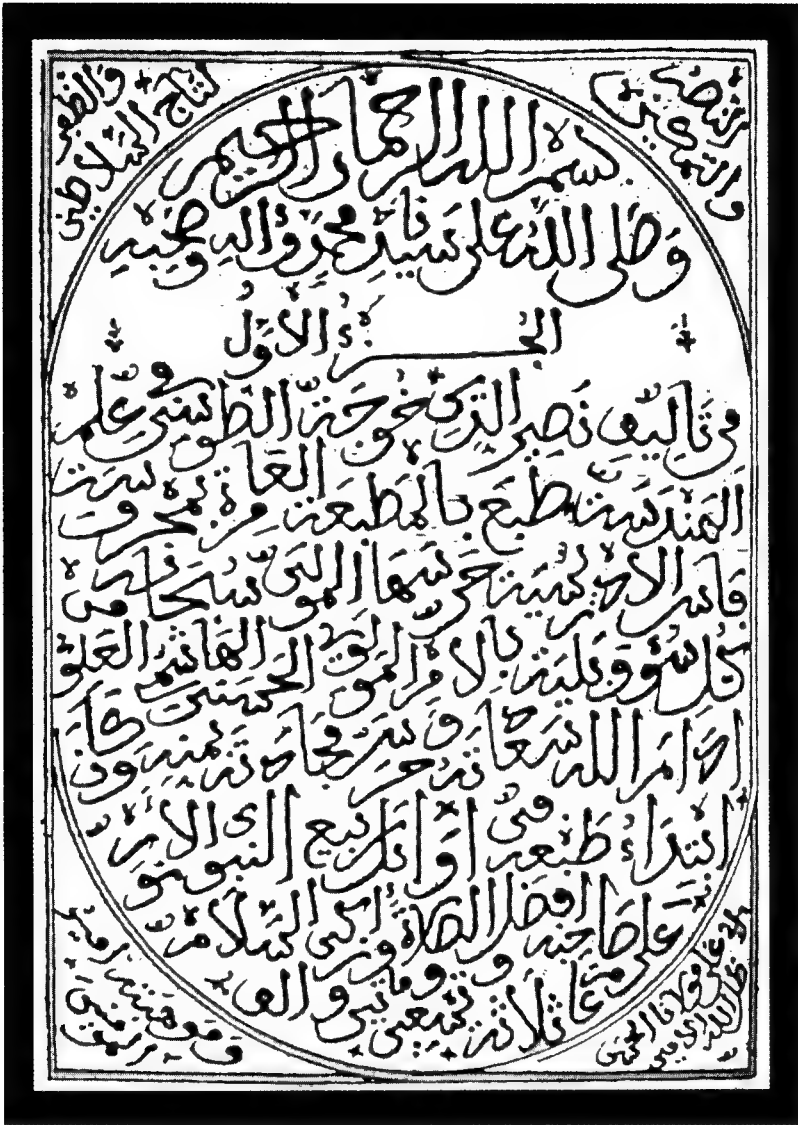 النصر والتمكين
والظفر لتاج السلاطين
بسم الله الرحمان الرحيم
وصلى الله على سيدنا محمد وءاله وصحبه
الجزء الاول
في تأليف نصير الدين خوجة الطوسي في علم
الهندسة طبع بالمطبعة العامرة بمحروسة
فاس الادريسية حرسها المولى سبحانه من
كل سوء وبلية بالامر المولوي الحسني الهاشمي العلوي
ادام الله سعادته وحرس مجادته بمنه وكان
ابتداء طبعه في اوائل ربيع النبوي الانور
على صاحبه افضل الصلاة وازكى السلام من
عام ثلاثة وتسعين ومائتين والف
مولانا الحسن
امير المومنين